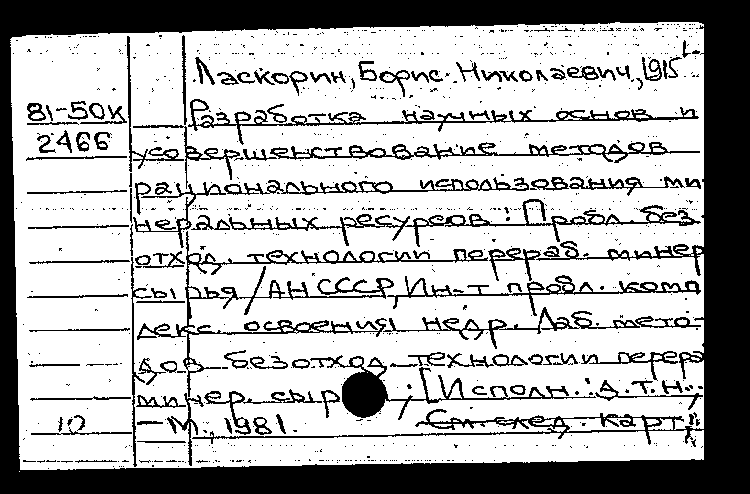 Ласкорин, Борис Николаевич, 1915
81-50к
Разработка научных основ и
2466
усовершенствование методов
рационального использования ми
неральных ресурсов: Пробл. без-
отход. технологии перераб. минер
сырья / АН СССР, Ин-т пробл. комп
лекс. освоения недр. Лаб. мето-
дов безотход. технологии перера
минер. сыр ; [Исполн.: д.т.н.
10
— М., 1981.
См. след. карт